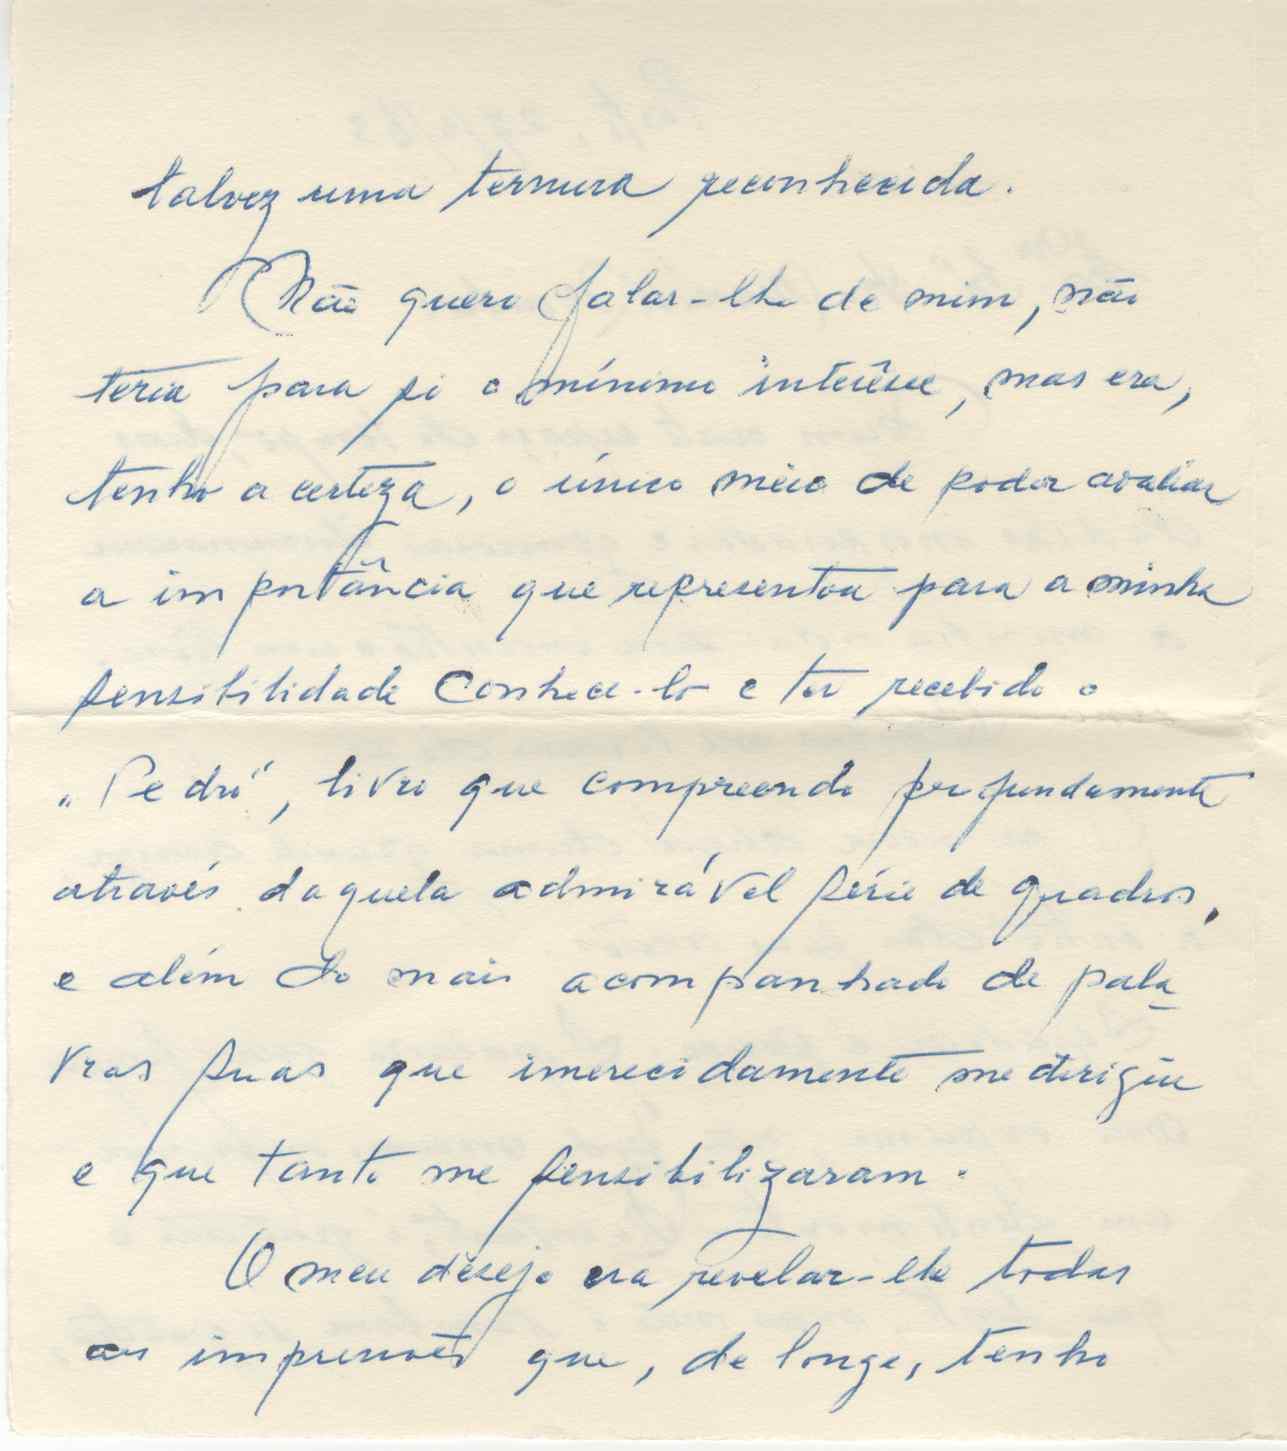 talvez uma ternura reconhecida.
Não quero falar-lhe de mim, não
teria para si o mínimo interêsse, mas era,
tenho a certeza, o único meio de poder avaliar
a importância que representou para a minha
sensibilidade conhece-lo e ter recebido o
"Pedro", livro que compreendo profundamente
através daquela admirável série de quadros,
e além do mais acompanhado de pala-
vras suas que imerecidamente me dirigiu
e que tanto me sensibilizaram.
O meu desejo era revelar-lhe todas
as impressões que, de longe, tenho